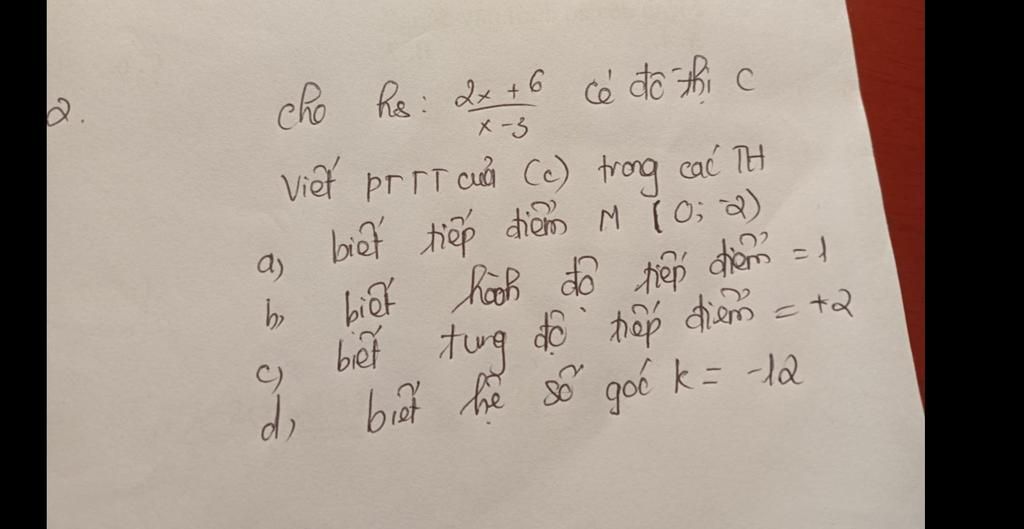 2. Cho hs: \frac{2x+6}{x-3} có đồ thị C
Viết PTTT của (c) trong các TH
a, biết tiếp điểm M (0; -2)
b, biết hoành độ tiếp điểm = 1
c, biết tung độ tiếp điểm = +2
d, biết hệ số góc k = -12